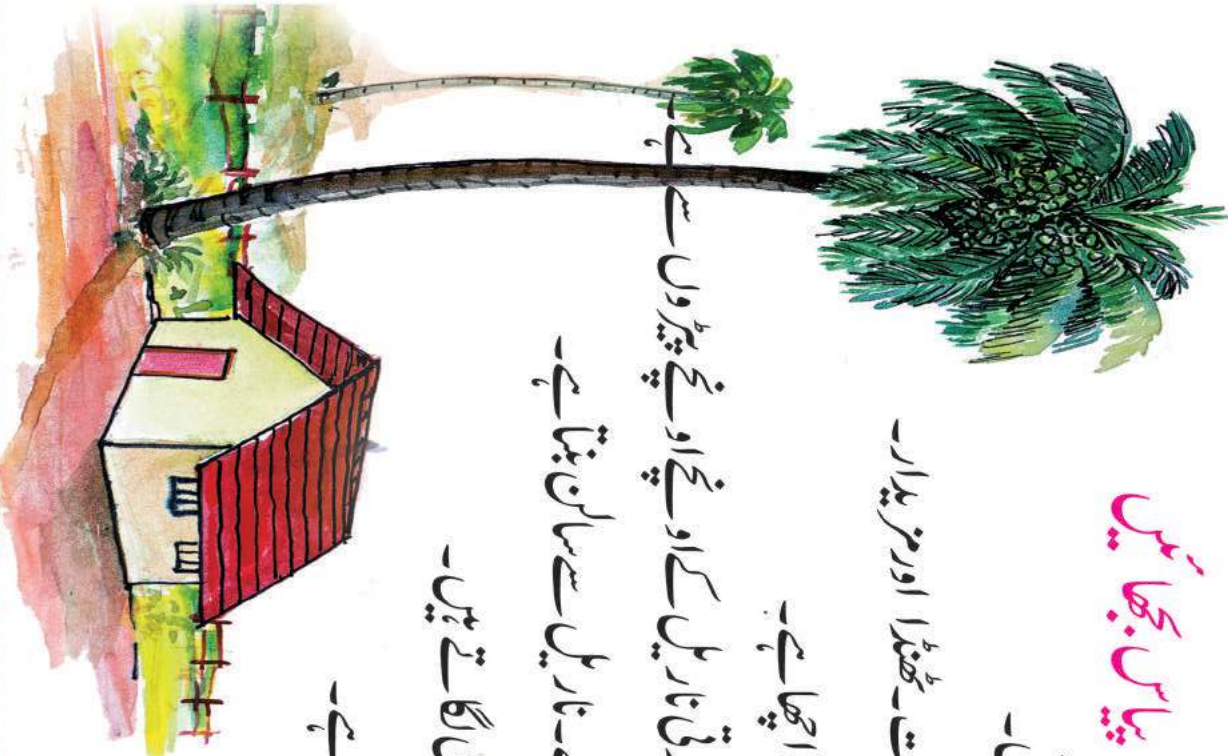 پیاس بجھائیں
ٹھنڈا اور مزیدار۔
اچھا ہے۔
ناریل کے اونچے اونچے پیڑوں سے ہے۔
ناریل سے سالن بنتا ہے۔
لگاتے ہیں۔
ہے۔